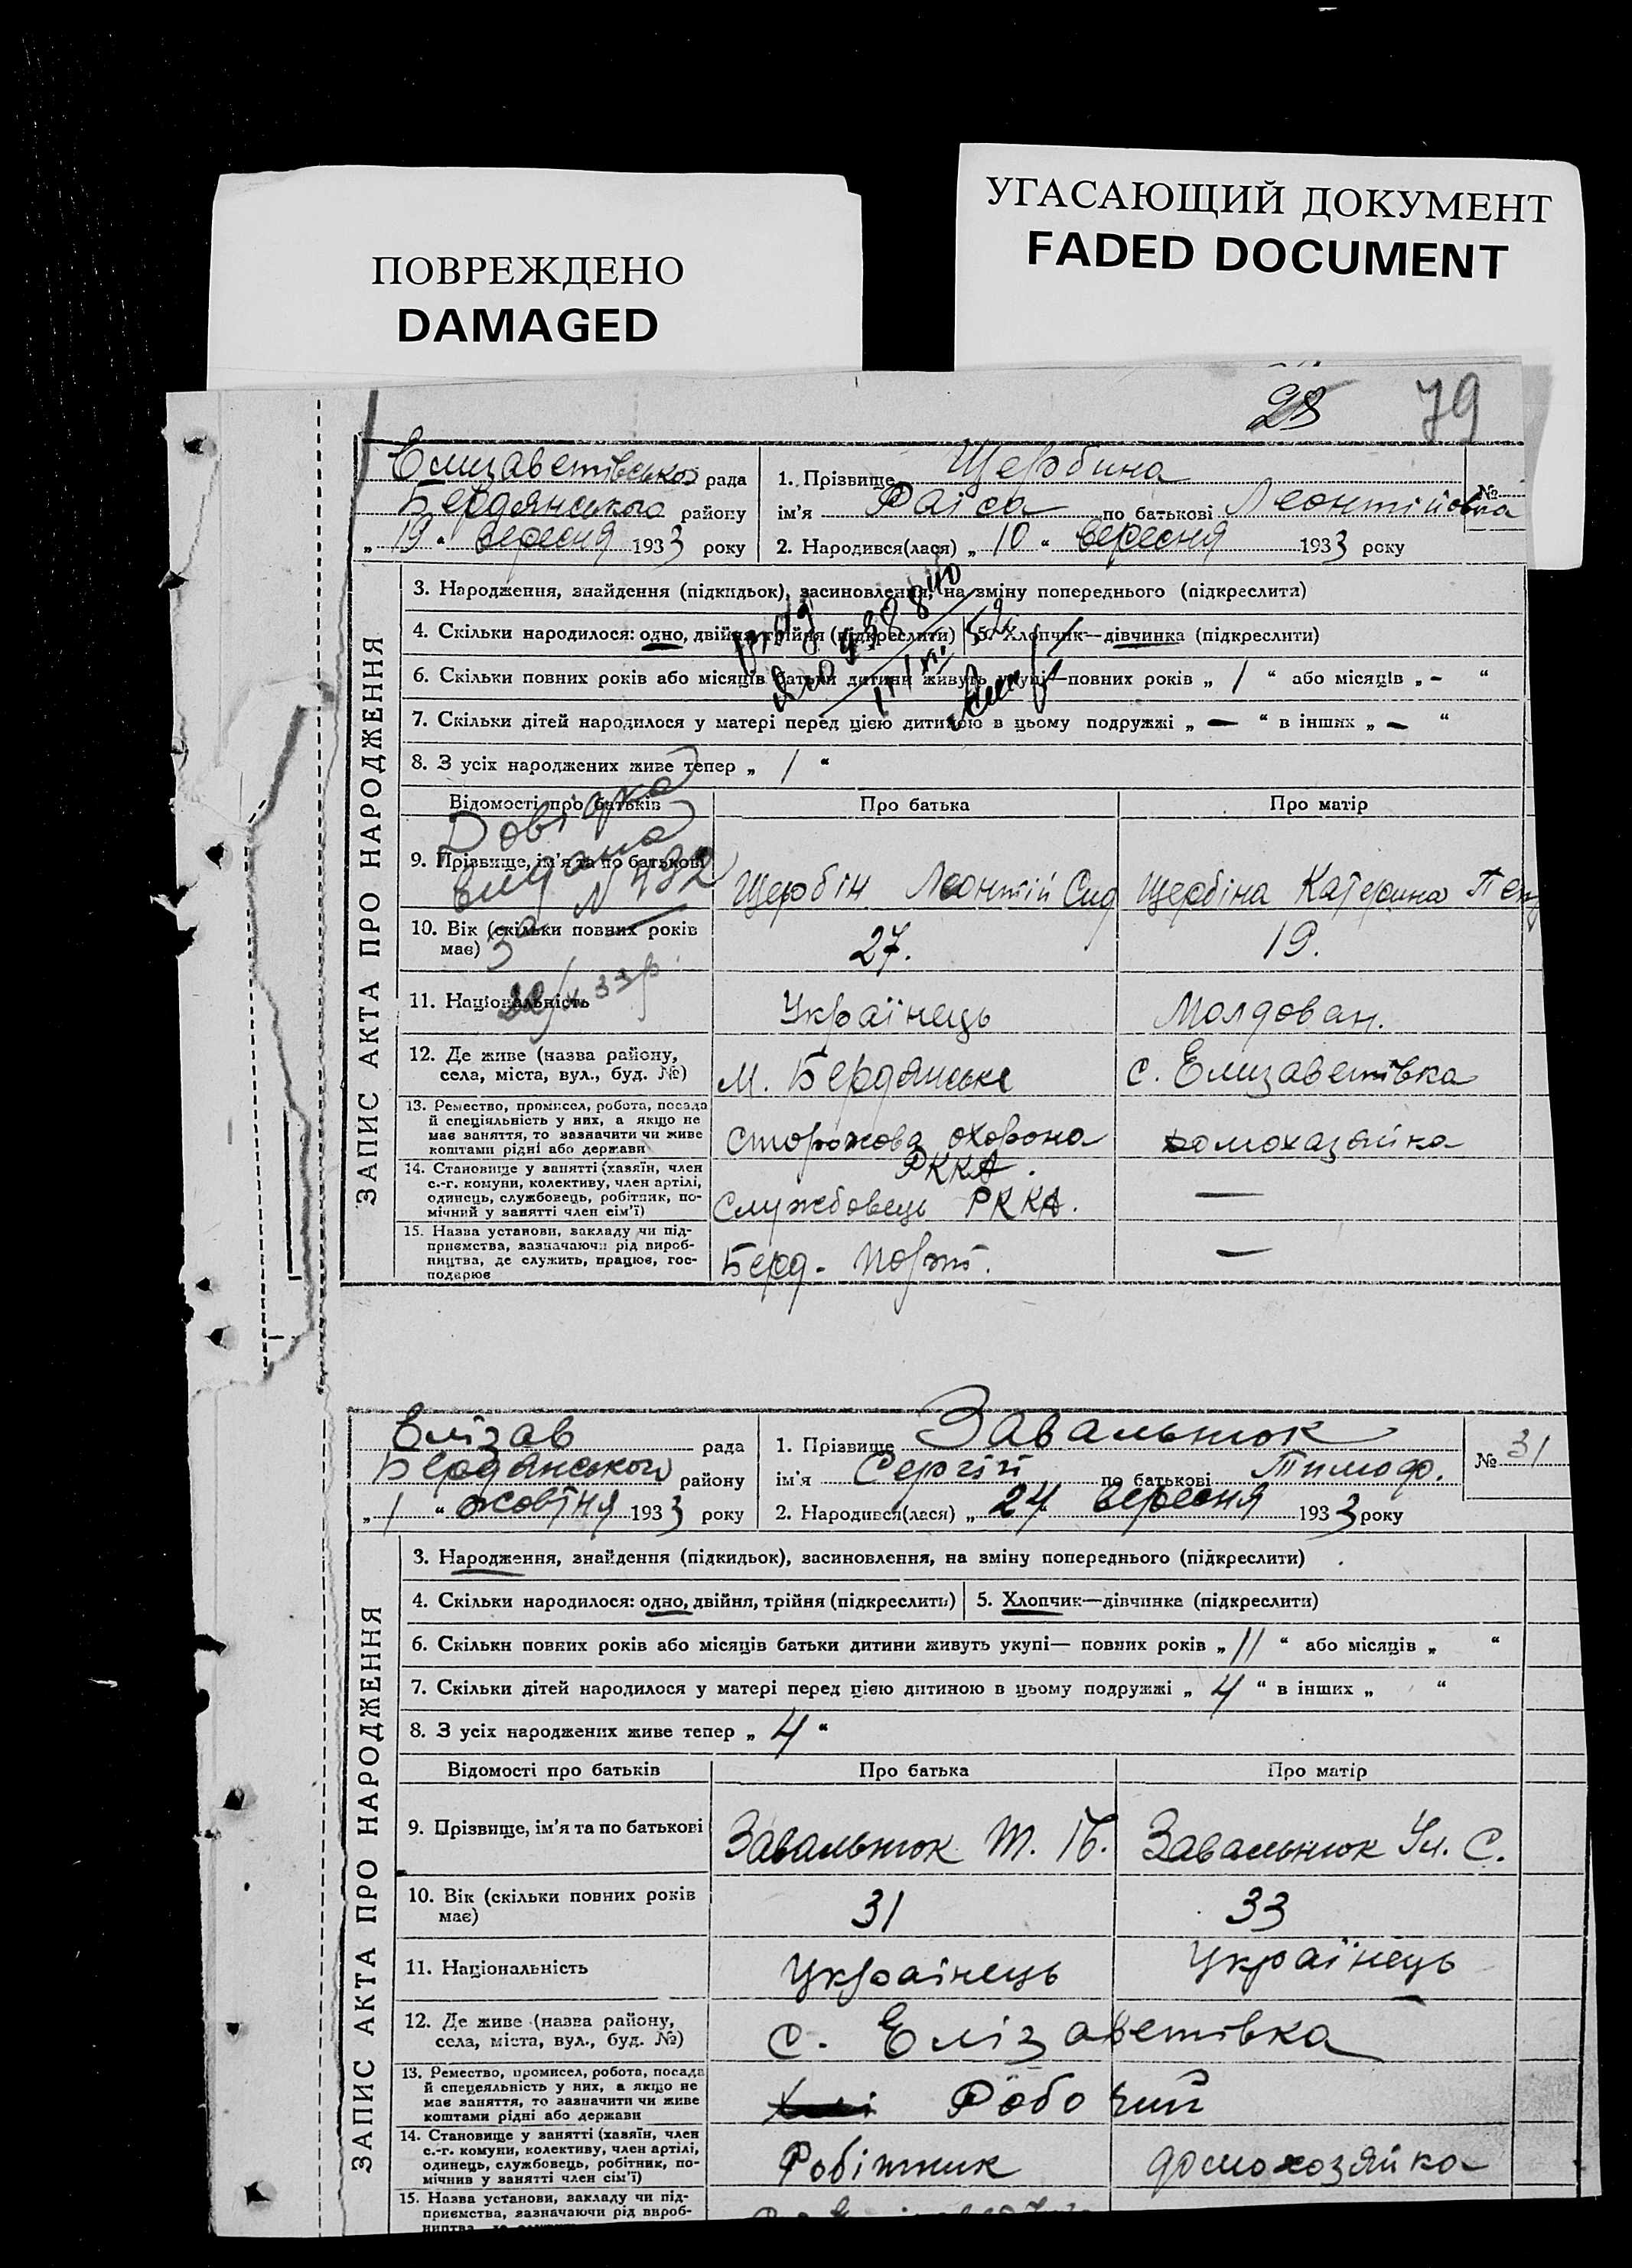 ПОВРЕЖДЕНО
DAMAGED
УГАСАЮЩИЙ ДОКУМЕНТ
FADED DOCUMENT
28 79
Елизаветівської рада
Бердянського району
„ 19 “ вересня 1933 року
1. Прізвище Щербина
ім'я Раїса по батькові Леонтійовна
№
2. Народився(лася) „ 10 “ вересня 1933 року
ЗАПИС АКТА ПРО НАРОДЖЕННЯ
3. Народження, знайдення (підкидьок), засиновлення, на зміну попереднього (підкреслити)
4. Скільки народилося: одно, двійня, трійня (підкреслити) 5. Хлопчик—дівчинка (підкреслити)
6. Скільки повних років або місяців батьки дитини живуть укупі—повних років „ 1 “ або місяців „ - “
7. Скільки дітей народилося у матері перед цією дитиною в цьому подружжі „ — “ в інших „ — “
8. З усіх народжених живе тепер „ 1 “
Відомості про батьків Про батька Про матір
Довідка
видана
N 432
33р.
9. Прізвище, ім'я та по батькові Щербін Леонтій Сид Щербіна Катерина
10. Вік (скільки повних років має) 27. 19.
11. Національність Українець Молдован.
12. Де живе (назва району,
села, міста, вул., буд. №) м. Бердянськ с. Елизаветівка
13. Ремество, промисел, робота, посада
й спеціяльність у них, а якщо не
має заняття, то зазначити чи живе
коштами рідні або держави
Сторожова охорона РККА. домохазяйка
14. Становище у занятті (хазяїн, член
с.-г. комуни, колективу, член артілі,
одинець, службовець, робітник, по-
мічний у занятті член сім'ї)
Службовець РККА. —
15. Назва установи, закладу чи під-
приємства, зазначаючи рід вироб-
ництва, де служить, працює, гос-
подарює
Берд. Порт. —
Елізав рада
Бердянського району
„ 1 “ жовтня 1933 року
1. Прізвище Завальнюк
ім'я Сергій по батькові Тимоф.
№ 31
2. Народився(лася) „ 24 “ вересня 1933 року
ЗАПИС АКТА ПРО НАРОДЖЕННЯ
3. Народження, знайдення (підкидьок), засиновлення, на зміну попереднього (підкреслити)
4. Скільки народилося: одно, двійня, трійня (підкреслити) 5. Хлопчик—дівчинка (підкреслити)
6. Скільки повних років або місяців батьки дитини живуть укупі— повних років „ 11 “ або місяців „ “
7. Скільки дітей народилося у матері перед цією дитиною в цьому подружжі „ 4 “ в інших „ “
8. З усіх народжених живе тепер „ 4 “
Відомості про батьків Про батька Про матір
9. Прізвище, ім'я та по батькові Завальнюк Т. Завальнюк Ул. С.
10. Вік (скільки повних років має) 31 33
11. Національність Українець Українець
12. Де живе (назва району,
села, міста, вул., буд. №) с. Елізаветівка
13. Ремество, промисел, робота, посада
й спецеяльність у них, а якщо не
має заняття, то зазначити чи живе
коштами рідні або держави
Робочий
14. Становище у занятті (хазяїн, член
с.-г. комуни, колективу, член артілі,
одинець, службовець, робітник, по-
мічник у занятті член сім'ї)
Робітник домохозяйка
15. Назва установи, закладу чи під-
приємства, зазначаючи рід вироб-